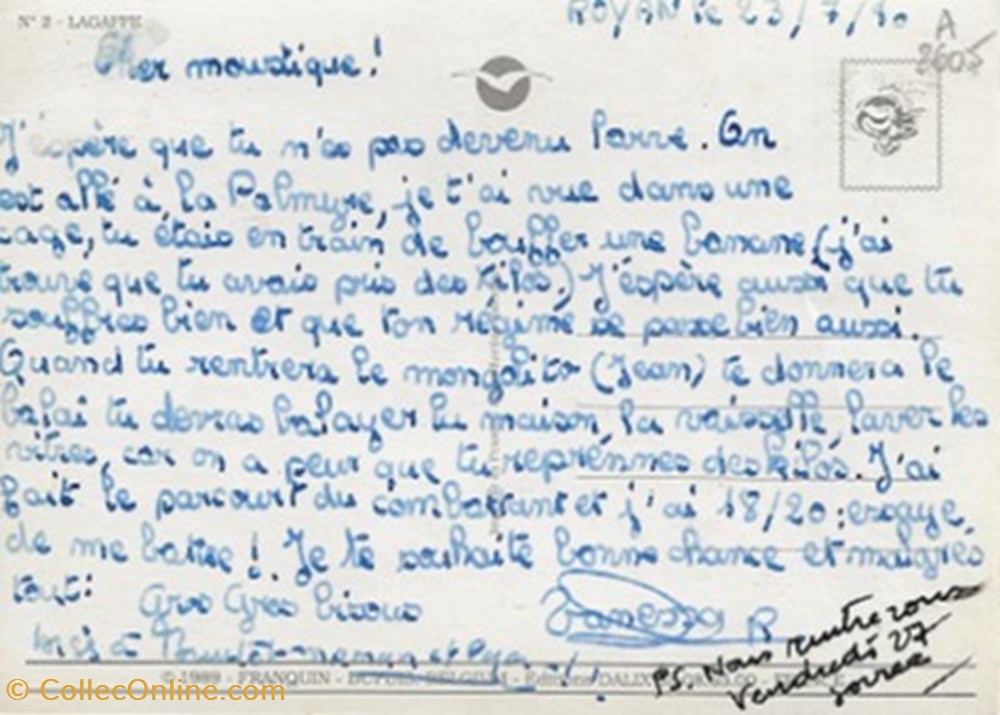 N° 2 - LAGAFFE
ROYAN le 23/7/90
A
3605
Cher moustique!
J'espère que tu n'es pas devenu larve. On
est allé à la Palmyre, je t'ai vue dans une
cage, tu étais en train de bouffer une banane (j'ai
trouvé que tu avais pris des kilos.) J'espère aussi que tu
souffres bien et que ton régime se passe bien aussi.
Quand tu rentrera le mongolito (Jean) te donnera le
balai tu devras balayer la maison, la vaisselle, laver les
vitres, car on a peur que tu reprennes des kilos. J'ai
fait le parcourt du combattant et j'ai 18/20 : essaye
de me battre ! Je te souhaite bonne chance et malgrés
tout: Gros Gros bisous
Vanessa R
maman et
PS. Nous rentrerons
Vendredi 27
© 1989 - FRANQUIN - DUPUIS-BELGIUM - Editions DALIX - FRANCE
© CollecOnline.com